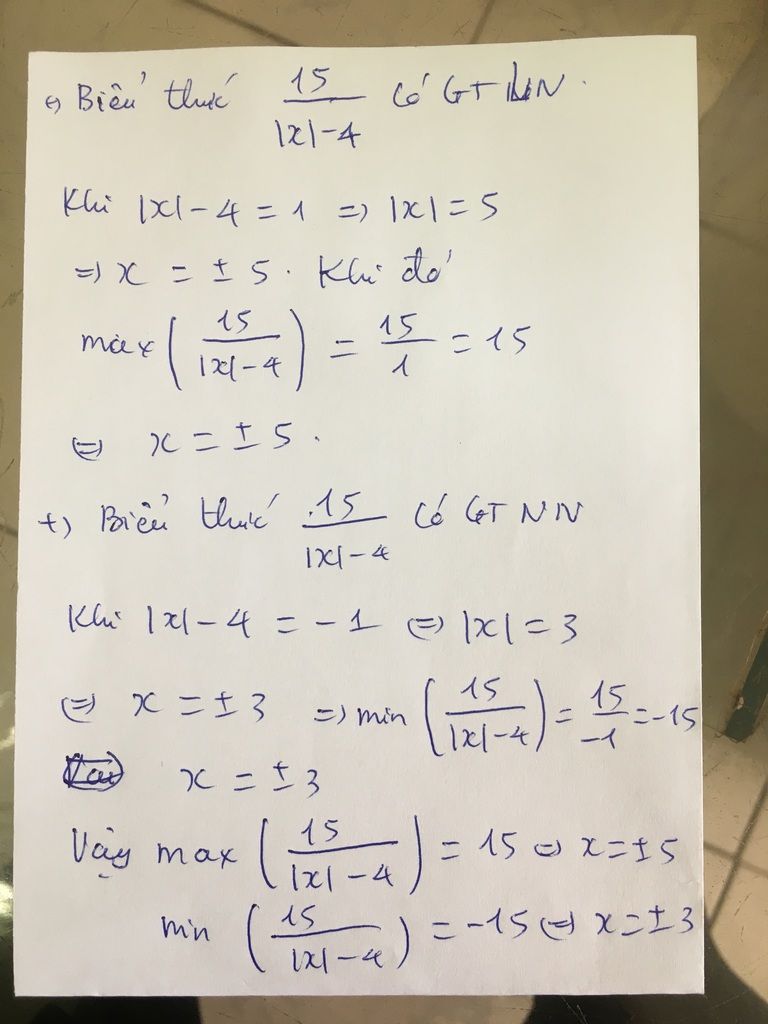 +) Biểu thức 15/(|x|-4) có GTLN.
Khi |x| - 4 = 1 => |x| = 5
=> x = ± 5. Khi đó
max (15/(|x|-4)) = 15/1 = 15
<=> x = ± 5.
+) Biểu thức 15/(|x|-4) có GTNN
Khi |x| - 4 = -1 <=> |x| = 3
<=> x = ± 3 => min (15/(|x|-4)) = 15/-1 = -15
x = ± 3
Vậy max (15/(|x|-4)) = 15 <=> x = ± 5
min (15/(|x|-4)) = -15 <=> x = ± 3